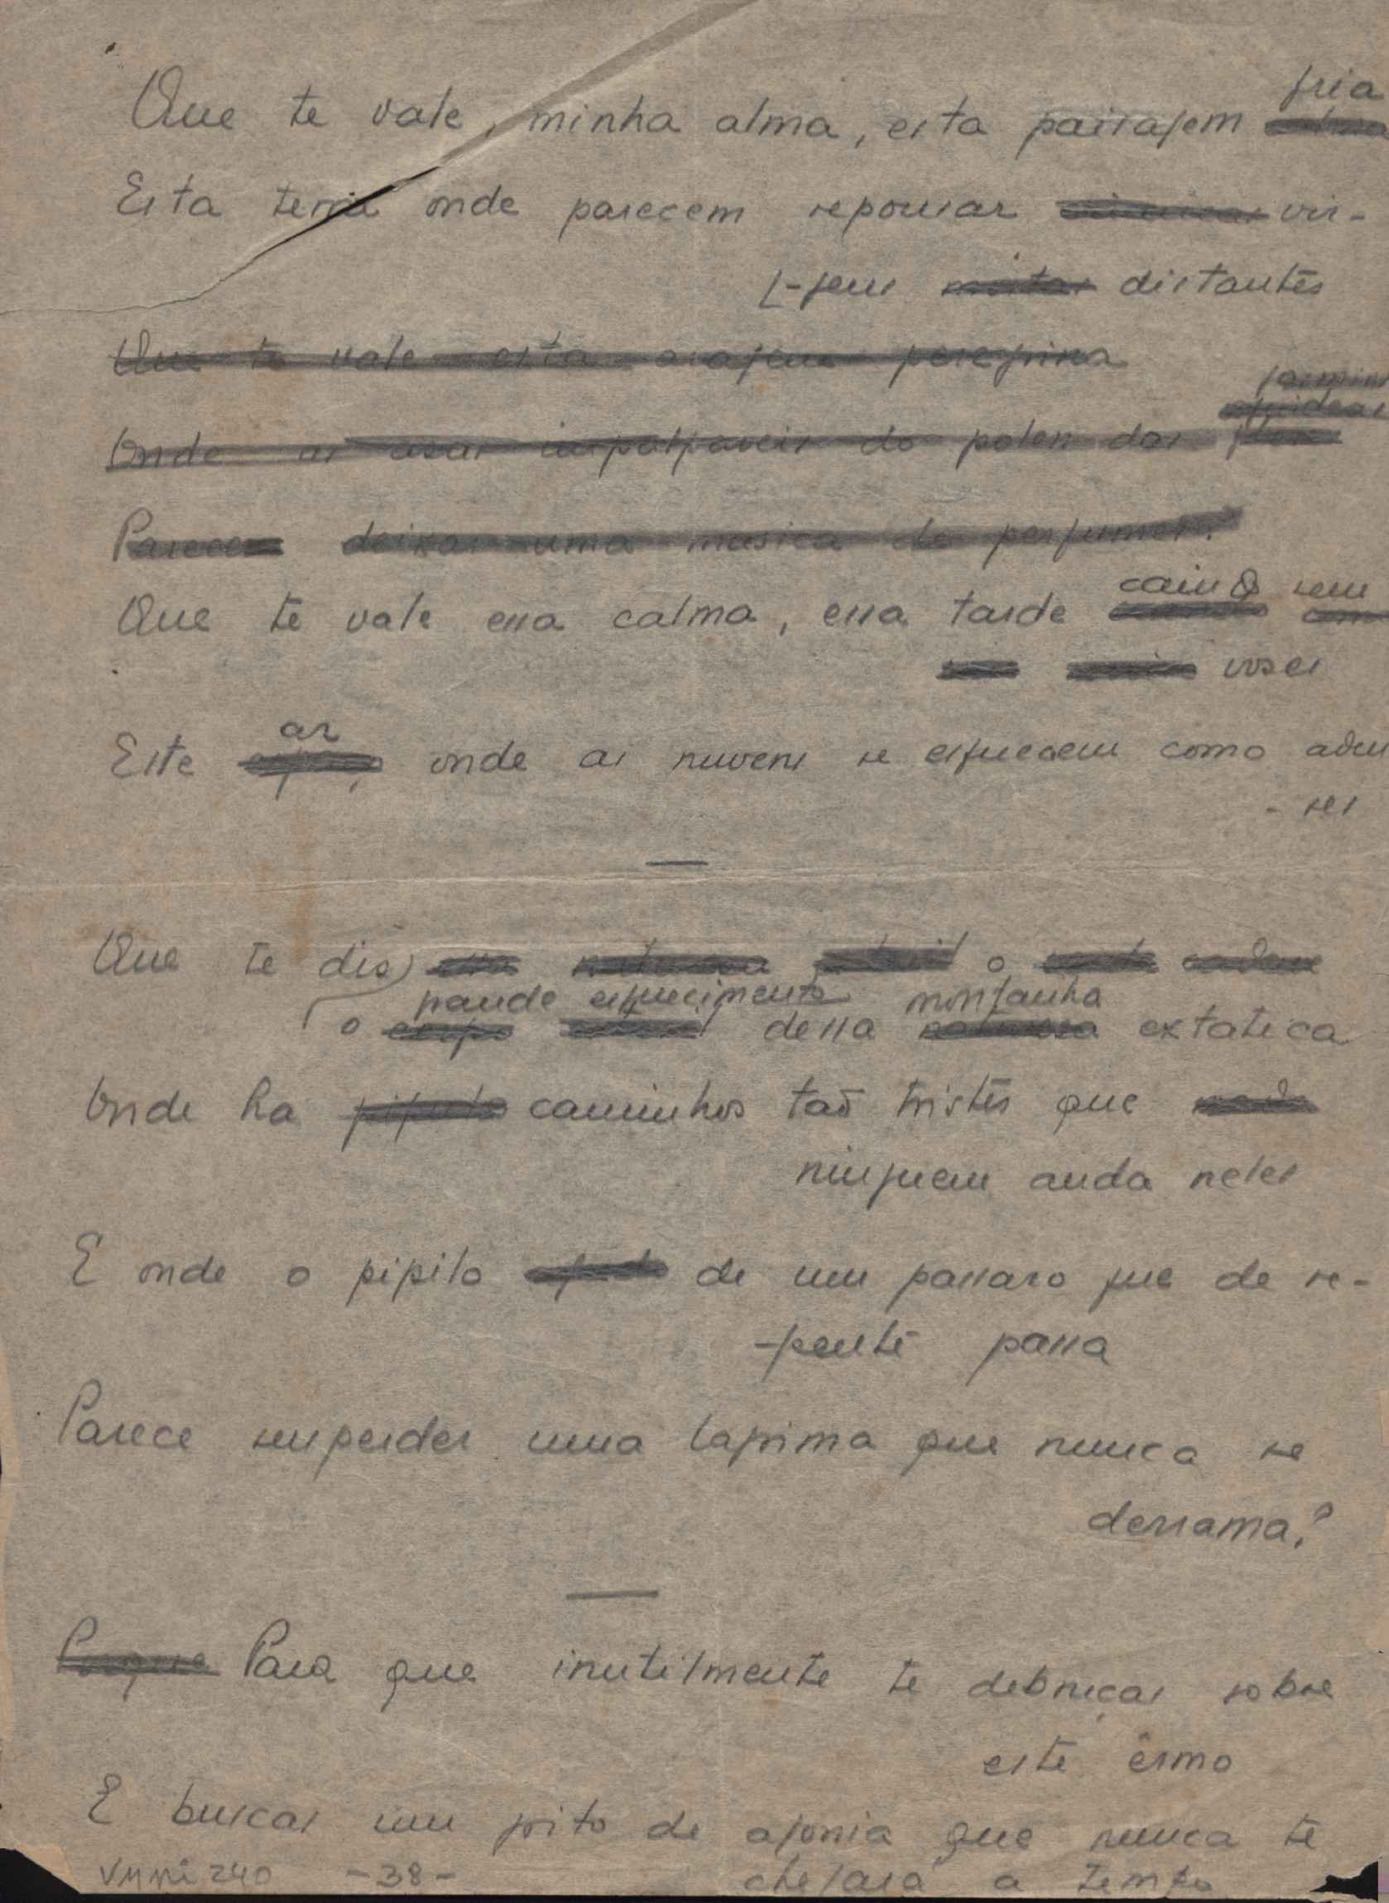 fria
Que te vale, minha alma, esta paisagem
Esta terra onde parecem repousar vir-
-gens distantes
Que te vale esta aragem peregrina
jasmins
Onde as asas impalpaveis do polen das
Parecem deixar uma musica de perfumes?
caindo sem
Que te vale essa calma, essa tarde
vozes
ar
Este , onde as nuvens se esquecem como adeu
- ses
Que te diz o
grande esquecimento montanha
o dessa natureza extatica
Onde ha caminhos taõ tristes que
ninguem anda neles
E onde o pipilo de um passaro que de re-
-pente passa
Parece suspender uma lagrima que nunca se
derrama?
Porque Para que inutilmente te debruças sobre
este êrmo
E buscas um grito de agonia que nunca te
chegará a tempo
VMMi 240 -38-